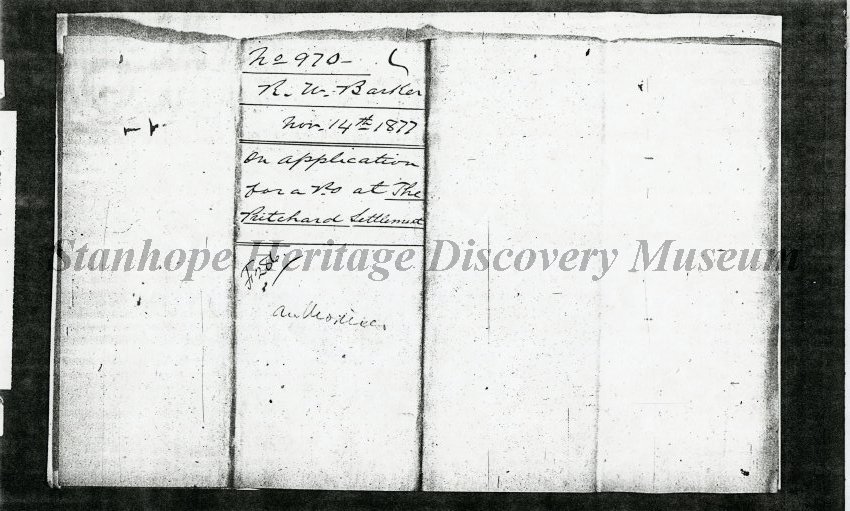 No 970-
R. W. Barker
Nov. 14th 1877
On application
for a P.O at The
Pritchard Settlement
Stanhope Heritage Discovery Museum